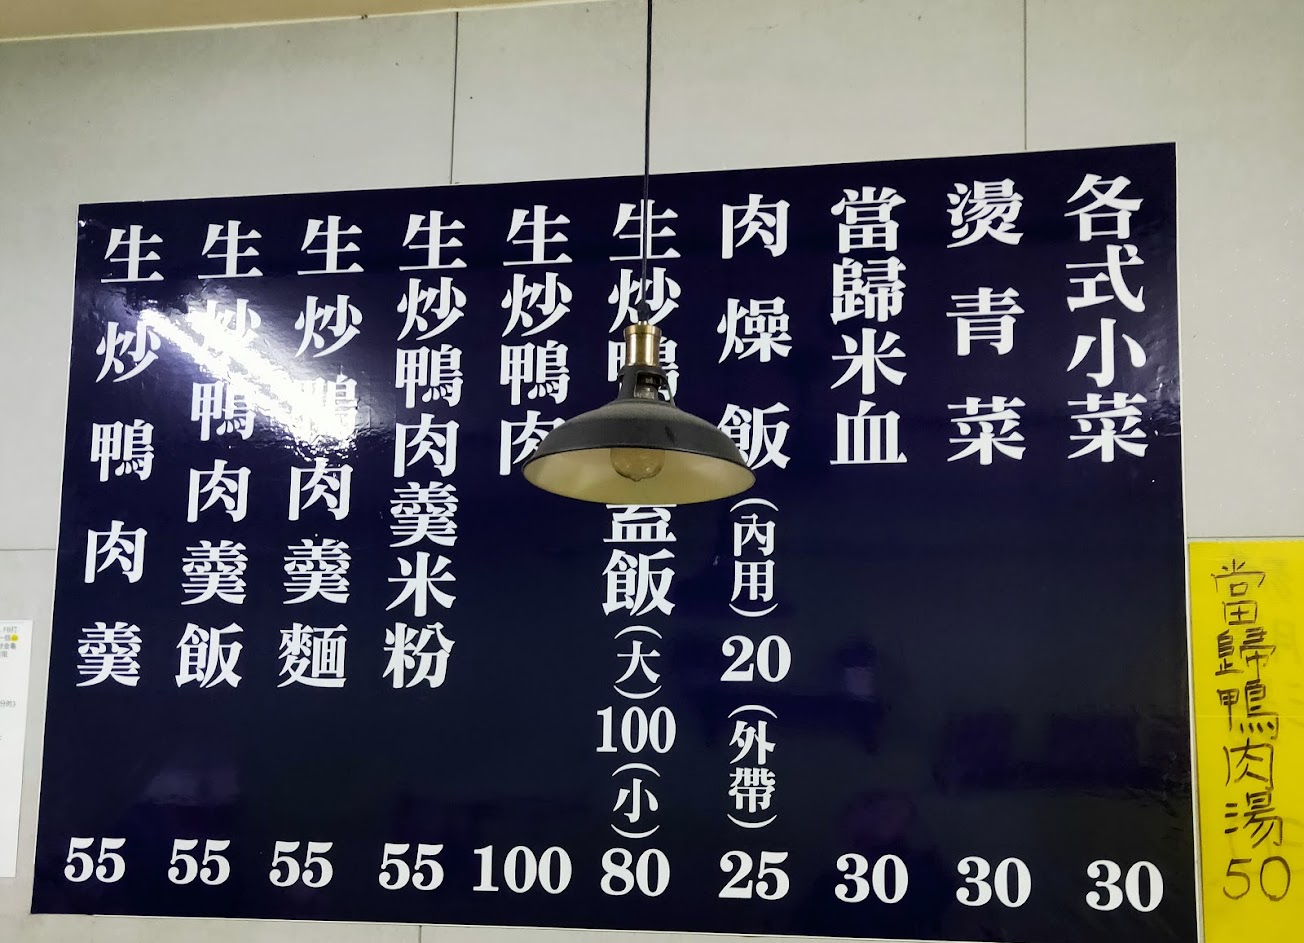 各式小菜 30
燙青菜 30
當歸米血 30
肉燥飯(內用)20(外帶)25
生炒鴨 蓋飯(大)100(小)80
生炒鴨肉 100
生炒鴨肉羹米粉 55
生炒鴨肉羹麵 55
生炒鴨肉羹飯 55
生炒鴨肉羹 55
當歸鴨肉湯50